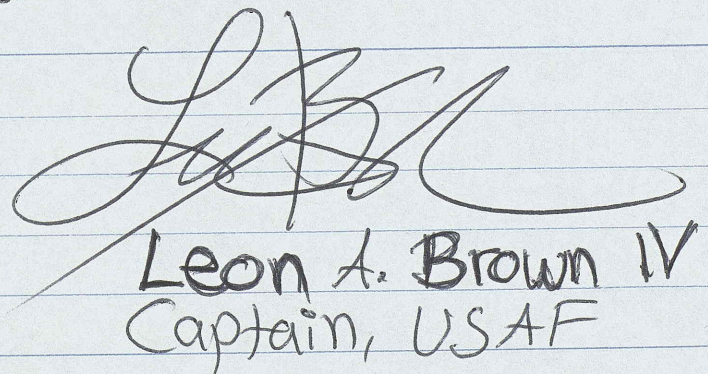 Leon A. Brown IV
Captain, USAF